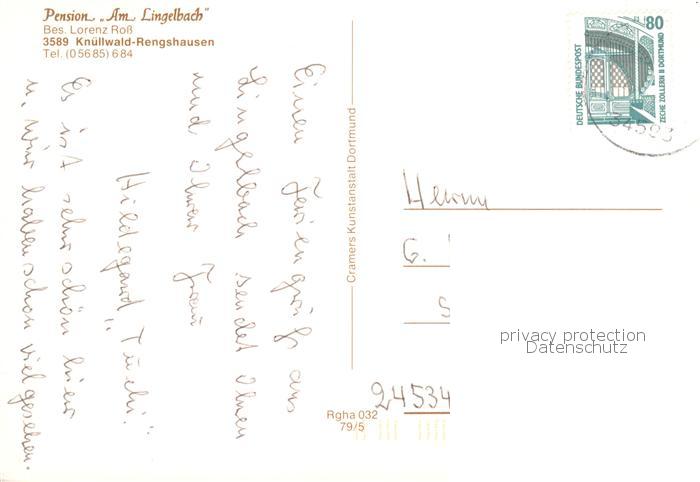 Pension „Am Lingelbach"
Bes. Lorenz Roß
3589 Knüllwald-Rengshausen
Tel. (05685) 684
Einen Feriengruß aus
Lingelbach sendet Ihnen
und Ihrer Frau
Hildegard "Tuchi"
Es ist sehr schön hier
u. wir haben schon viel gesehen.
Cramers Kunstanstalt Dortmund
Rgha 032
79/5
80
DEUTSCHE BUNDESPOST
ZECHE ZOLLERN II DORTMUND
34593
Herrn
G.
S
24534
privacy protection
Datenschutz